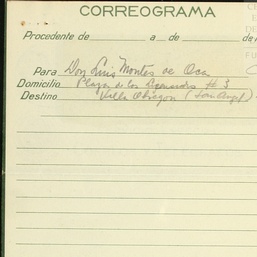 CORREOGRAMA
Procedente de a de de
Para Don Luis Montes de Oca
Domicilio Plaza de los Licenciados # 3
Destino Villa Obregon (San Angel)